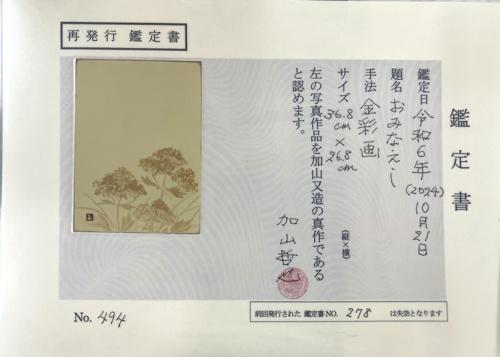 再発行 鑑定書
鑑定書
鑑定日 令和6年(2024)10月21日
題名 おみなえし
手法 金彩画
サイズ 36.8cm×26.8cm (縦×横)
左の写真作品を加山又造の真作である
と認めます。
加山哲也
No. 494
前回発行された 鑑定書NO. 278 は失効となります